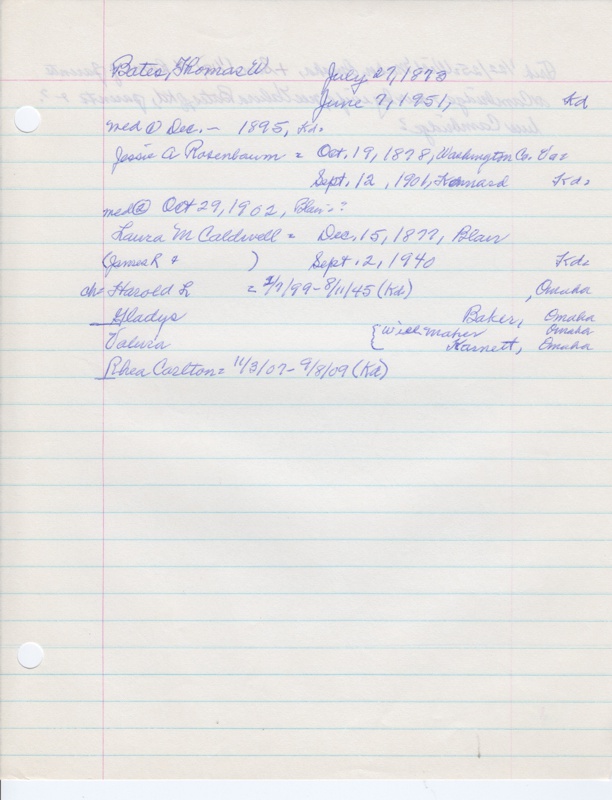 Bates, Thomas W July 27, 1873
June 7, 1951, Kd
med ① Dec. - 1895, Kd.
Jessie A Rosenbaum = Oct. 19, 1878, Washington Co. Va.
Sept. 12, 1901, Kennard Kd.
med ② Oct 29, 1902, Blair?
Laura M Caldwell = Dec. 15, 1877, Blair
(James R & ) Sept. 2, 1940 Kd.
ch= Harold L = 2/7/99 - 8/11/45 (Kd) , Omaha
Gladys Baker, Omaha
Valura { Will Maher Omaha
Karnett, Omaha
Rhea Carlton = 11/3/07 - 9/8/09 (Kd)